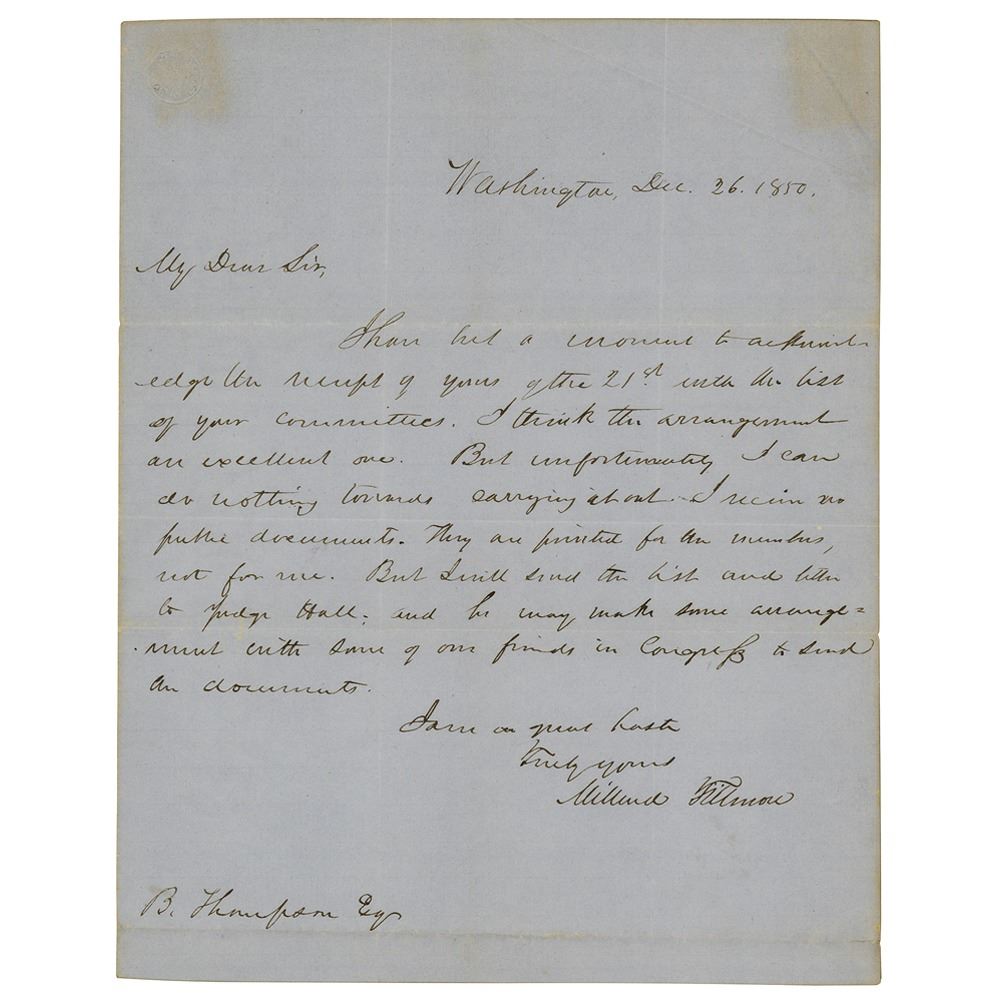 Washington, Dec. 26. 1850.
My Dear Sir,
I have but a moment to acknowl-
edge the receipt of yours of the 21st with the list
of your committees. I think the arrangement
an excellent one. But unfortunately I can
do nothing towards carrying it out. I receive no
public documents. They are printed for the members,
not for me. But I will send the list and letter
to Judge Hall, and he may make some arrange=
ment with some of our friends in Congress to send
the documents.
I am in great haste
Truly yours
Millard Fillmore
B. Thompson Esq